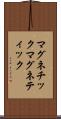 マグネチッ
クマグネテ
ィック